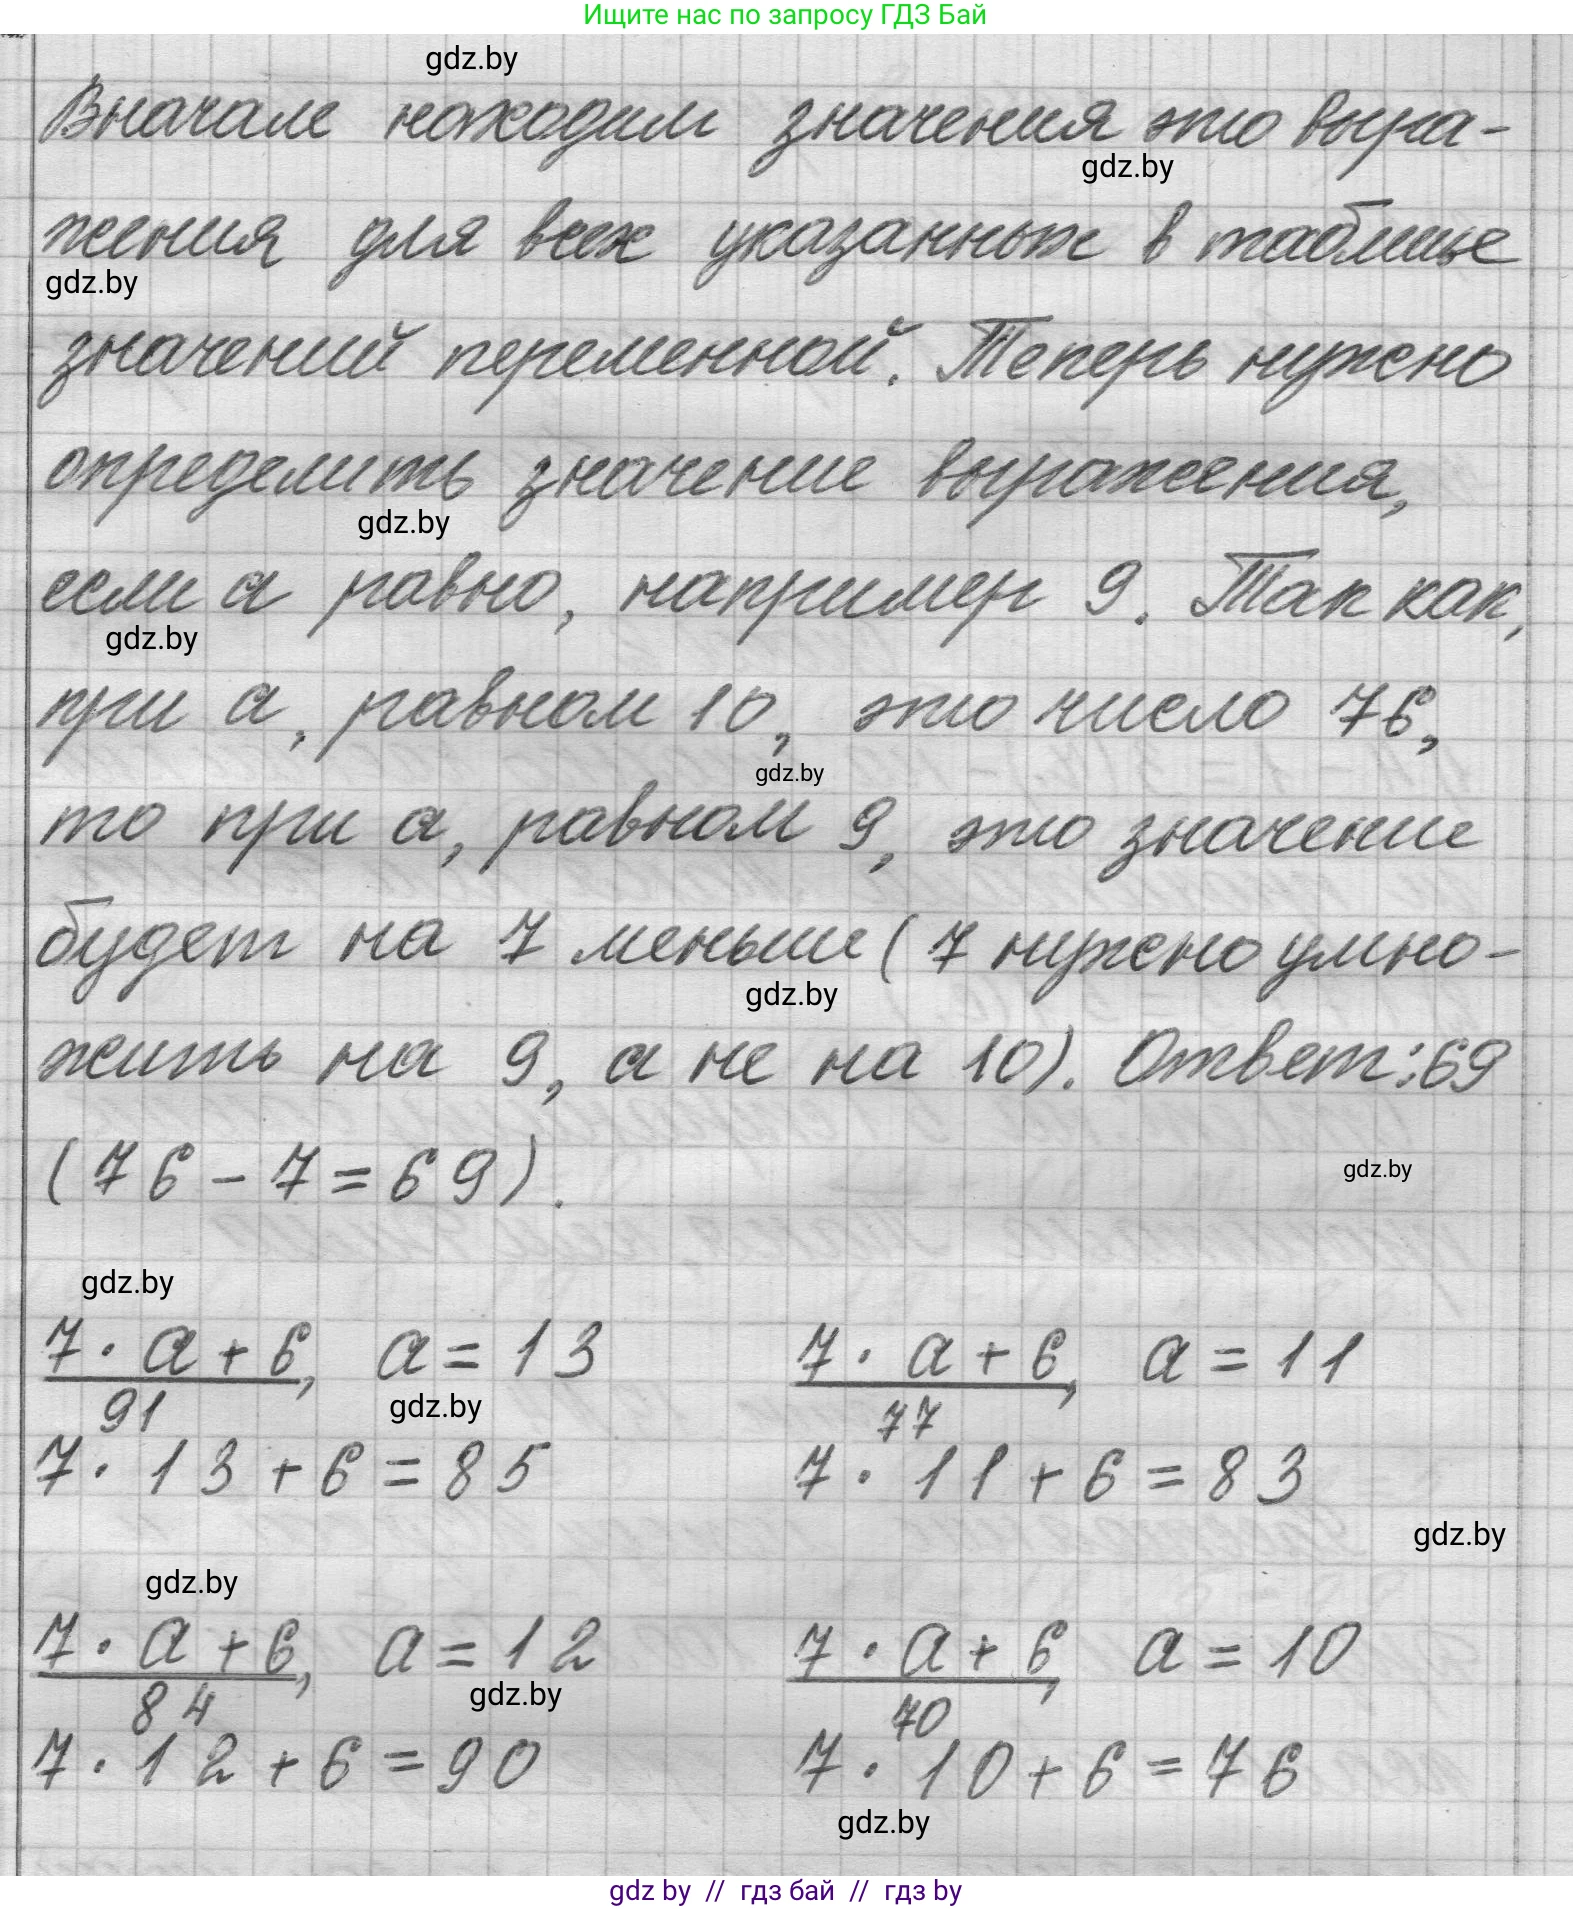 Ищите нас по запросу ГДЗ Бай
gdz.by
Вначале находим значения это выра-
gdz.by
жения для всех указанных в таблице
gdz.by
значений переменной. Теперь нужно
определить значение выражения,
gdz.by
если a равно, например 9. Так как,
gdz.by
при a, равном 10, это число 76,
gdz.by
то при a, равном 9, это значение
будет на 7 меньше (7 нужно умно-
gdz.by
жить на 9, а не на 10). Ответ: 69
(76 - 7 = 69).
gdz.by
gdz.by
7 · a + 6, a = 13 7 · a + 6, a = 11
91 gdz.by 77
7 · 13 + 6 = 85 7 · 11 + 6 = 83
gdz.by
gdz.by
7 · a + 6, a = 12 7 · a + 6, a = 10
84 gdz.by 70
7 · 12 + 6 = 90 7 · 10 + 6 = 76
gdz.by
gdz by // гдз бай // гдз by